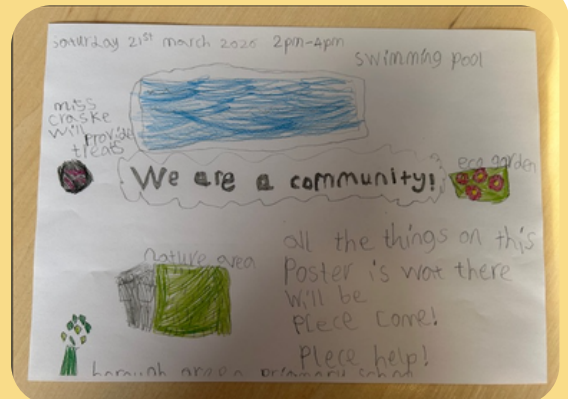 saturday 21st march 2026 2pm-4pm
swimming pool
miss
craske
will provide
treats
We are a community!
eco garden
nature area
all the things on this
Poster is wat there
will be
Plece come!
Plece help!
borough green primary school